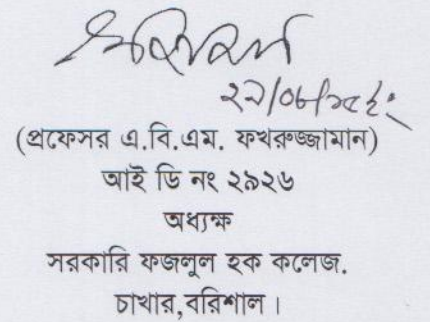 ২২/০৬/১৫ ইং
(প্রফেসর এ.বি.এম. ফখরুজ্জামান)
আই ডি নং ২৯২৬
অধ্যক্ষ
সরকারি ফজলুল হক কলেজ.
চাখার,বরিশাল।